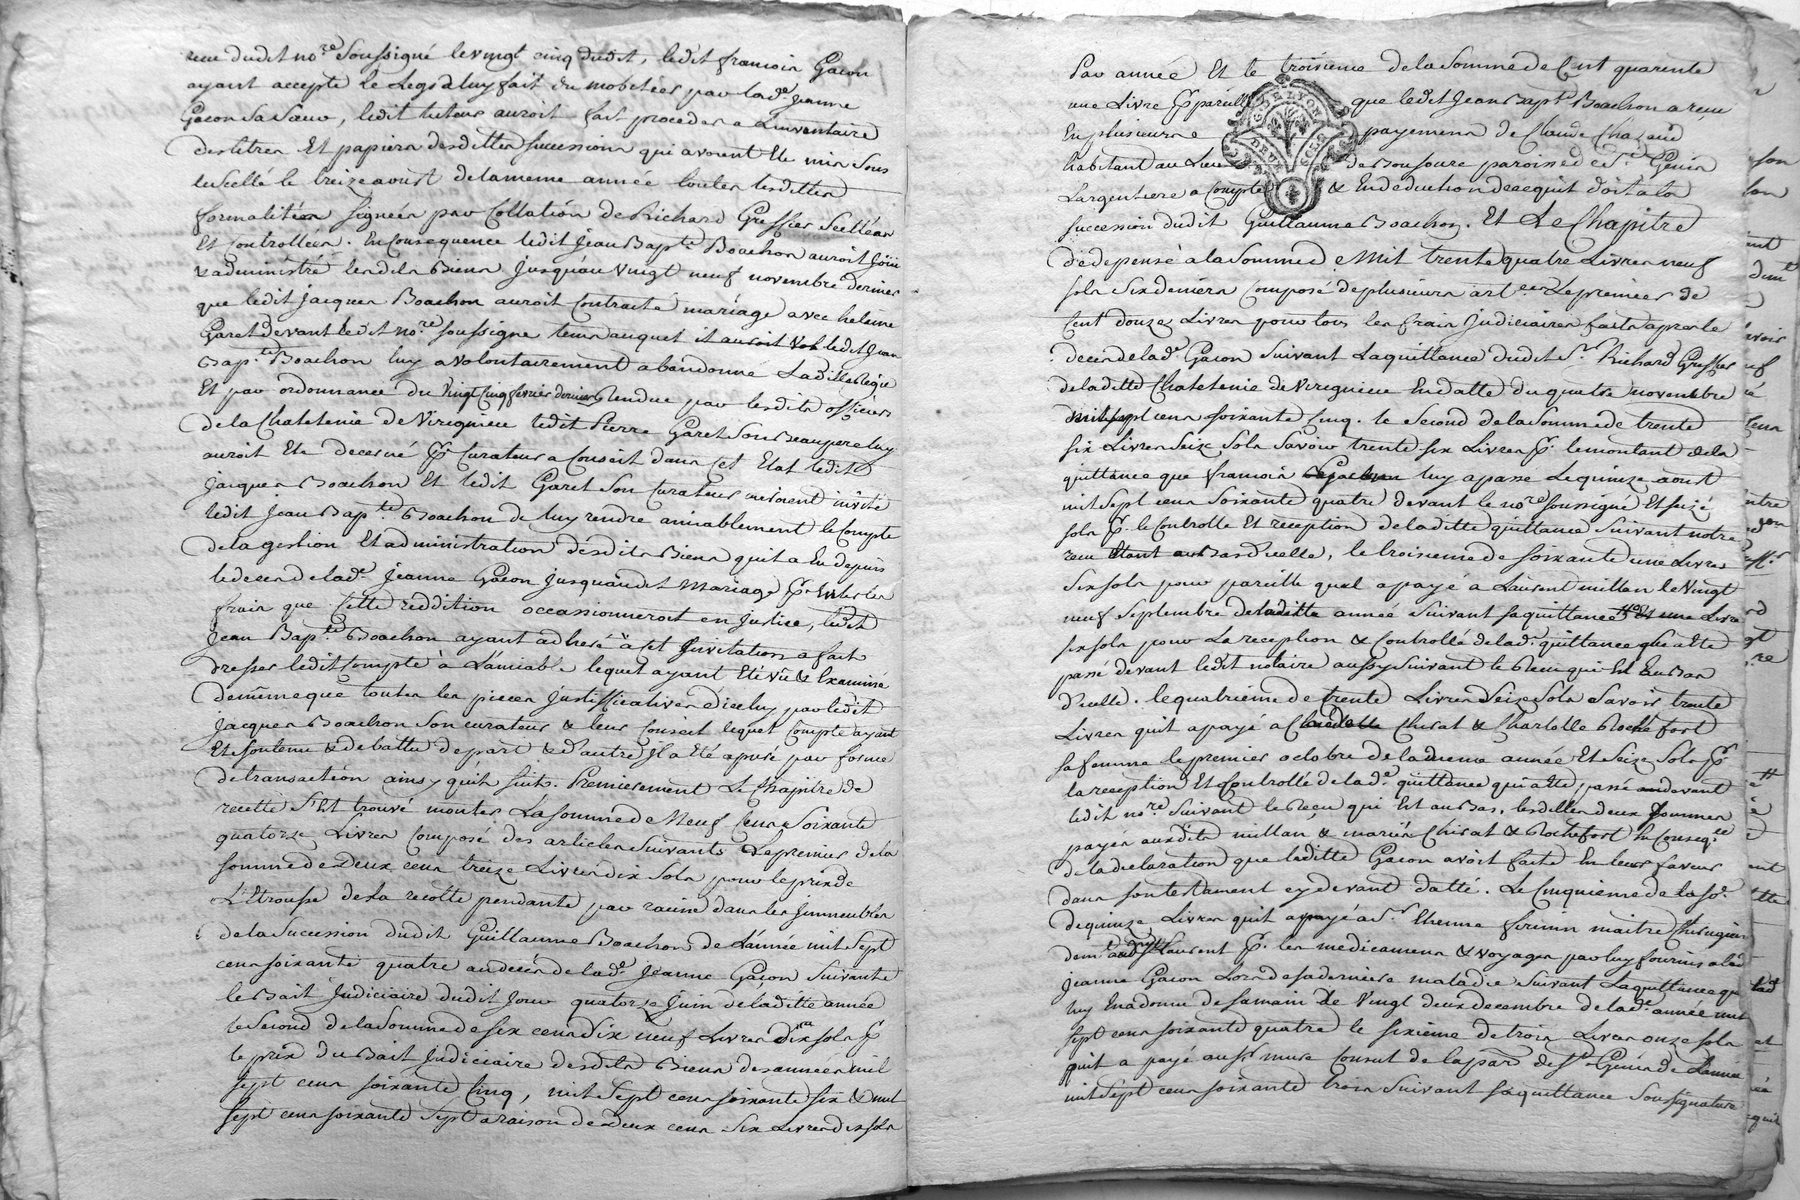 receu dudit no.re soussigné le vingt cinq dudit, ledit francois Gacon
ayant accepté le Legs a luy fait du mobelier par lad.e Jeanne
Gacon Sa Sœur, ledit tuteur auroit fait proceder a L'inventaire
des titres Et papiers desdittes successions qui avoient Eté mis sous
le scellé le treize aoust de la meme année toutes lesdittes
formalités signées par Collation de Richard Greffier Scellées
Et Controllées. En Consequence ledit Jean Bap.te Boachon auroit Joüi
& administré lesdits Biens Jusqu'au vingt neuf novembre dernier
que ledit Jacques Boachon auroit Contracté mariage avec helaine
Garet devant ledit no.re soussigne tems auquel il auroit ledit Jean
Bap.te Boachon luy a volontairement abandonné
Et par ordonnance du vingt Cinq fevrier dernier Rendue par lesdits officiers
de la Chatelenie de Virignieu ledit Pierre Garet Son Beaupere luy
auroit Eté decerné p.r Curateur a Conseil dans Cet Etat ledit
Jacques Boachon Et ledit Garet Son Curateur auroient invité
ledit Jean Bap.te Boachon de luy rendre amiablement le Compte
de la gestion Et administration desdits Biens qu'il a Eu depuis
le deces de lad.e Jeanne Gacon Jusqu'audit Mariage p.r Eviter les
frais que Cette reddition occasionneroit en Justice, ledit
Jean Bap.te Boachon ayant adheré à cet Invitation a fait
dresser ledit Compte à L'amiable lequel ayant Eté vu & Examiné
de meme que toutes les pieces Justifficatives d'iceluy par ledit
Jacques Boachon Son curateur & leur Conseil lequel Compte ayant
Eté soutenu & debattu de part & d'autre Il a Eté apuré par forme
de transaction ainsy qu'il suit. Premierement Le Chapitre de
recette S'Est trouvé monter La somme de Neuf Cens Soixante
quatorze Livres Composé des articles suivants Le premier de la
somme de Deux cens treize Livres dix Sols pour le prix de
L'Etrousse de la recolte pendante par racine dans les Immeubles
de la Succession dudit Guillaume Boachon de L'année mil Sept
cens soixante quatre au deces de lad.e Jeanne Gacon Suivant
le Bail Judiciaire dudit Jour quatorze Juin de laditte année
le Second de la Somme de six cens dix neuf Livres dix sols p.r
le prix du Bail Judiciaire desdits Biens des années mil
Sept cens soixante Cinq, mil Sept cens soixante six & mil
Sept cens soixante Sept a raison de Deux cens Six Livres dix sols
Par année Et le troisieme de la Somme de Cent quarente
une Livre p.r pareille que ledit Jean Bapt.e Boachon a reçue
En plusieurs payemens de Claude Chazaud
habitant au Lieu de Bousoure paroisse de St Genis
Largentiere a Compte & En deduction de ce qu'il doit a la
succession dudit Guillaume Boachon. Et Le Chapitre
de depense à la Somme de Mil trente quatre Livres neuf
sols Six deniers Composé de plusieurs art.es Le premier de
Cent douze Livres pour tous les frais Judiciaires faits apres le
deces de lad.e Gacon Suivant La quittance dudit S.r Richard Greffier
de laditte Chatelenie de Virignieu En datte du quatre novembre
mil sept cens soixante Cinq. le Second de la Somme de trente
six Livres Seize Sols Savoir trente six Livres p.r le montant de la
quittance que francois luy a passé Le quinze aoust
mil Sept cens Soixante quatre devant le no.re soussigné Et Seize
sols p.r le Controlle Et reception de laditte quittance Suivant notre
receu Etant au Bas d'icelle, le troisieme de soixante une Livres
Six sols pour pareille qu'il a payé a Laurent millan le Vingt
neuf Septembre de laditte année Suivant sa quittance Et une Livre
six sols pour La reception & Controllé de lad.e quittance que a Eté
passé devant ledit notaire aussy Suivant le Recu qui Est Au Bas
d'icelle. le quatriéme de trente Livres Seize Sols Savoir trente
Livres qu'il a payé a Chirat & Charlotte Rochefort
sa femme le premier octobre de la meme année Et Seize Sols p.r
la reception Et Controllé de lad.e quittance qui a Eté passé devant
ledit no.re Suivant le Reçu qui Est au Bas, lesdittes deux Sommes
payés auxdits millan & mariés Chirat & Rochefort En Conseq.ce
de la declaration que laditte Gacon avoit faite En leur faveur
dans son testament cy devant datté. Le Cinquieme de la So.e
de quinze Livres qu'il a payé a S.r Etienne firmin maitre Chirugien
dem.t Laurent p.r les medicamens & voyages par luy fournis a lad.e
Jeanne Gacon Lors de sa derniere maladie Suivant La quittance qu'il
luy En a donné de sa main Le Vingt deux decembre de lad.e année mil
sept cens soixante quatre le sixieme de trois Livres onze sols
qu'il a payé au S.r mure Consul de la par.se de S.t Genis de L'année
mil Sept cens Soixante trois Suivant sa quittance Sous signature
G. DE LYON
DEUX SOLS